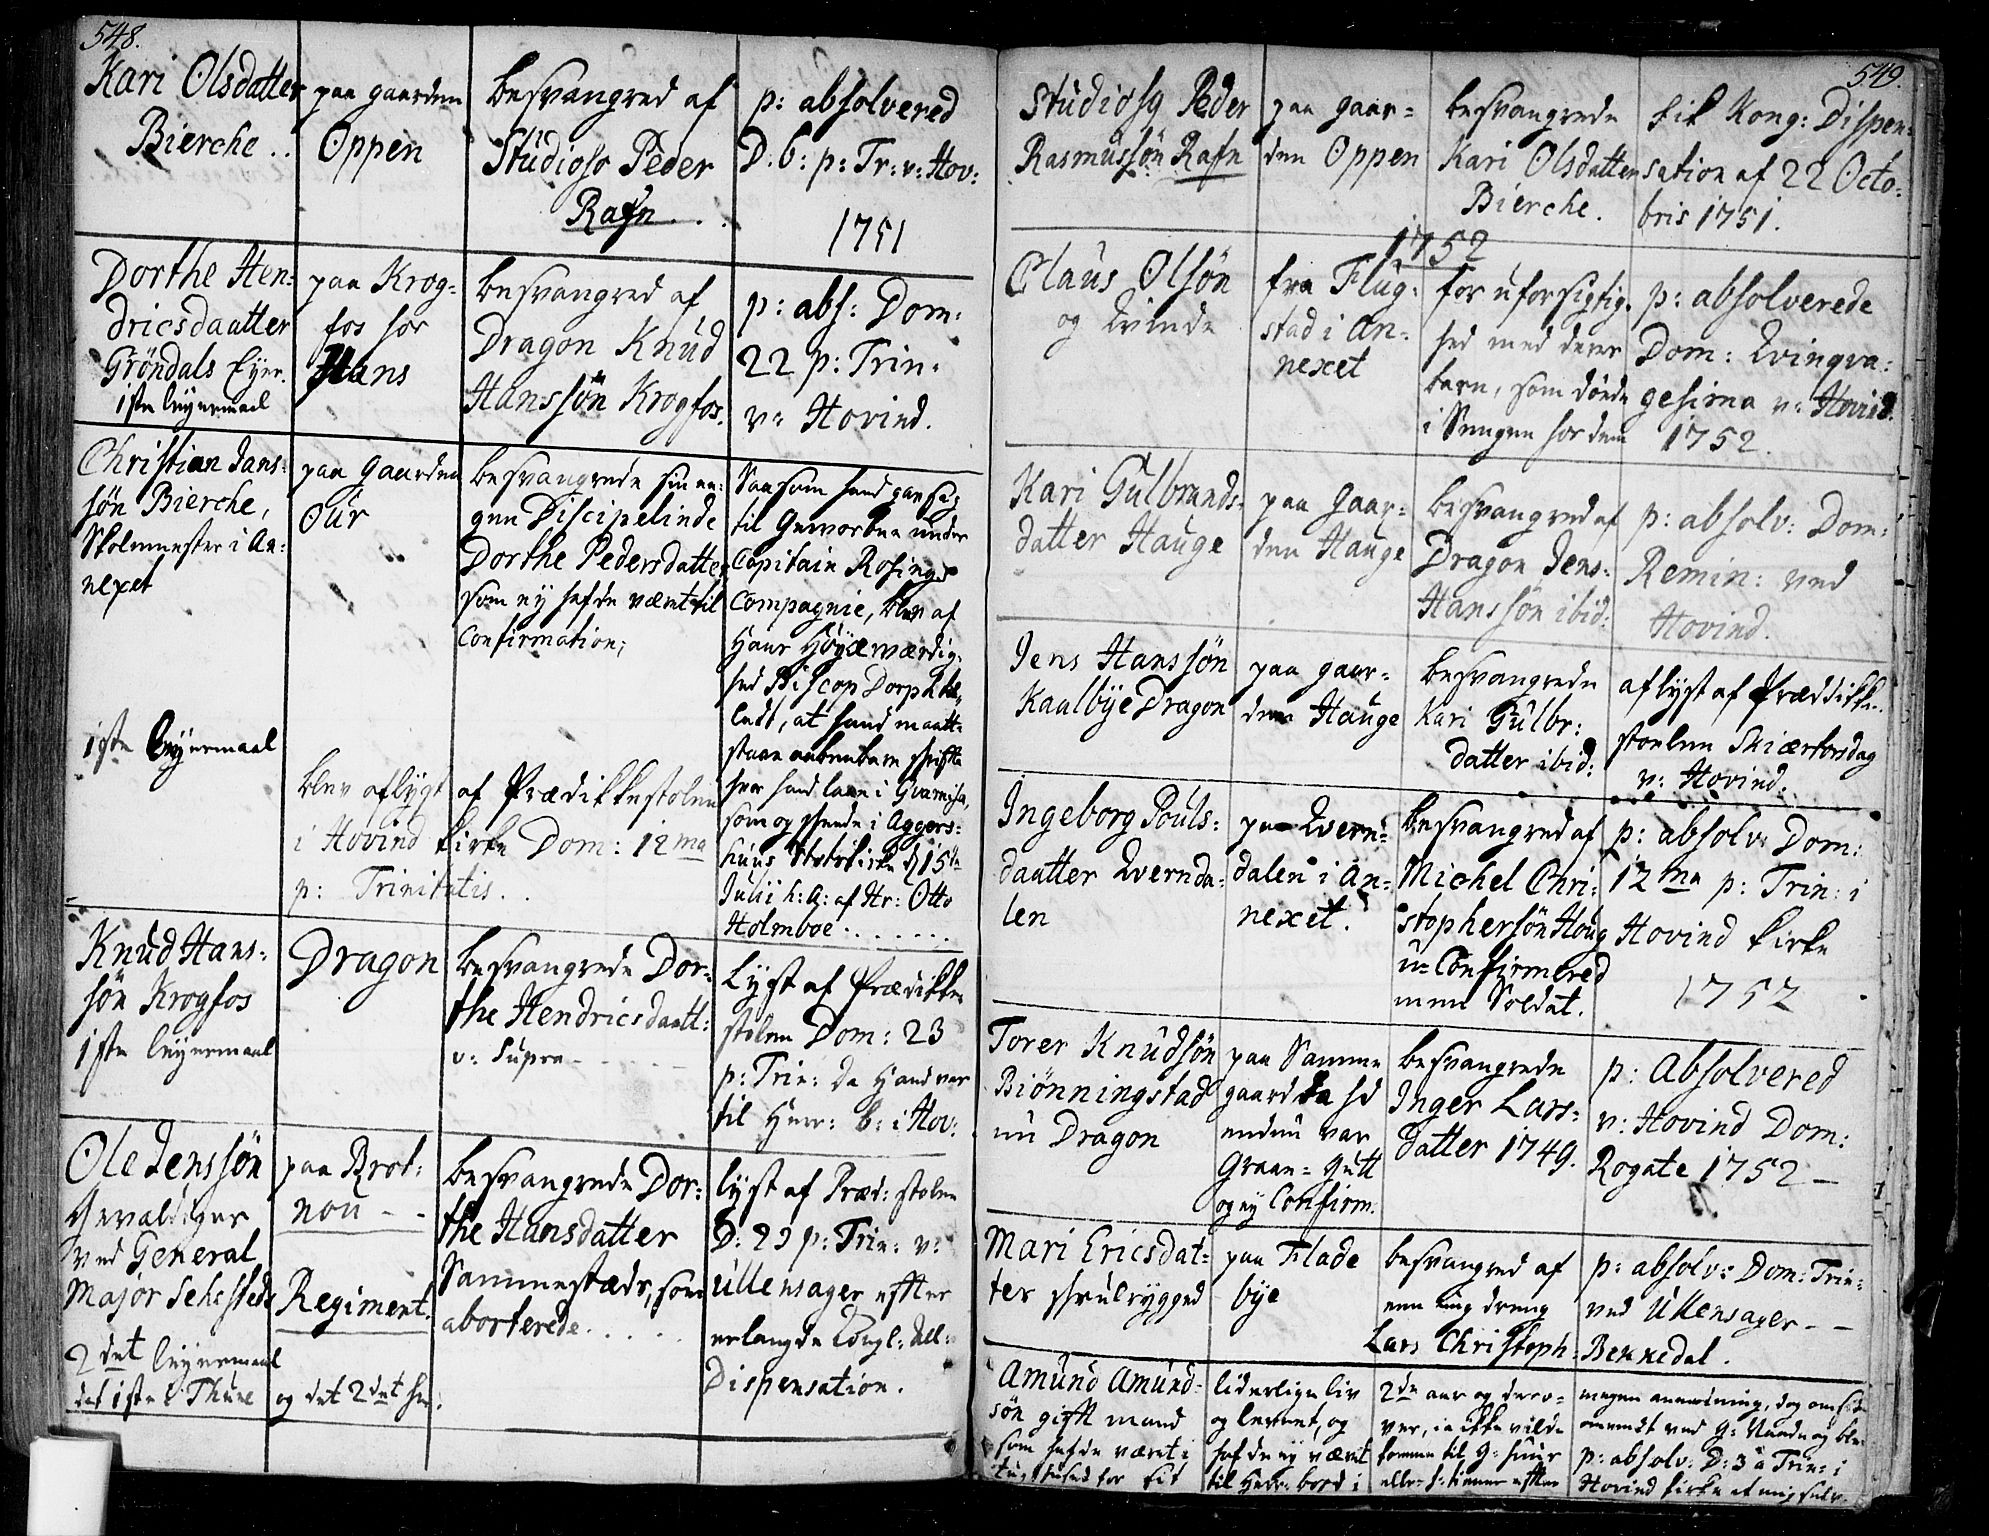 548.
Kari Olsdatter
Bierche . .
paa gaarden
Oppen
besvangred af
Studioso Peder
Rafn . .
p: absolvered
D. 6: p: Tr: v: Hov:
1751
Dorthe Hen-
dricsdaatter
Gröndals Eyer.
1ste leyermaal
paa Krog-
fos hos
Hans
besvangred af
Dragon Knud
Hanssön Krogfos.
p: abs: Dom:
22 p: Trin:
v: Hovind.
Christian Jans-
sön Bierche,
Skolemester i An-
nexet
1ste leyermaal
paa gaarden
Our
besvangrede sin e-
gen Discipelinde
Dorthe Pedersdatter
som ey hafde været til
Confirmation;
Saasom hand gav sig
til Geworben under
Capitain Rosings
Compagnie, blev af
Hans Höyærværdig-
hed Biscop Dorph be-
ledt, at hand maatte
staae aabenbare skrifte
hvor hand laae i Gvarnison,
som og skeede i Aggers-
huus Slotskirke d 15de
Julii h: a: af Hr: Otto
Holmboe . . . . . .
blev aflyst af Prædikkestolen
i Hovind kirke Dom: 12ma
p: Trinitatis . .
Knud Hans-
sön Krogfos
1ste leyermaal
Dragon
besvangrede Dor-
the Hendricsdaatt:
v: Supra - - - -
Lyst af Prædikke-
stolen Dom: 23
p: Trin: da Hand var
til Herr: b: i Hov:
Ole Jenssön
Gevaldiger
ved General
Major Sehesteds
2det leyermaal
det 1ste i Thune
paa Brot-
nou - -
Regiment.
og det 2det her:
besvangrede Dor-
the Hansdatter
Sammestæds, som
aborterede . . . . .
lyst af Præd: stolen
D: 23 p: Trin: v:
Ullensager efter
erlangde Kongl: All:
Dispensation.
549.
Studiosq Peder
Rasmussön Rafn
paa gaar-
den Oppen
besvangrede
Kari Olsdatter
Bierche.
fik Kong: Dispen-
sation af 22 Octo-
bris 1751.
1752
Claus Olsön
og Qvinde
fra Flug-
stad i An-
nexet
for uforsigtig-
hed med deres
barn, som döde
i Sengen hos dem
p: absolverede
Dom: Qvinqva-
gesima v: Hovind.
1752.
Kari Gulbrands-
datter Hauge
paa Gaar-
den Hauge
besvangred af
Dragon Jens
Hanssön ibid:
p: absolv: Dom:
Remin: ved
Hovind.
Jens Hanssön
Kaalbye Dragon
paa gaar-
den Hauge
besvangrede
Kari Gulbr:
datter ibid:
aflyst af Prædikke-
stoelen Skiærtorsdag
v: Hovind.
Ingeborg Pouls-
daatter Qvernda-
len
paa Qvern-
dalen i An-
nexet.
besvangred af
Michel Chri-
stophersön Houg
u-Confirmered
men Soldat.
p: absolv: Dom:
12 ma p: Trin: i
Hovind kirke
1752
Torer Knudsön
Biönningstad
nu Dragon
paa Samme
gaard da hd
endnu var
Graae-Gutt
og ey Confirm.
besvangrede
Inger Lars-
datter 1749.
p: Absolvered
v: Hovind Dom:
Rogate 1752 -
Mari Ericsdat-
ter skrulrygged
paa Flade
bye
besvangred af
een ung dreng
Lars Christoph:
p: absolv: Dom: Trin:
ved Ullensager - -
Bekkedal.
Amund Amund-
sön gift mand
som hafde været i
tugthuset for sit
liderlige liv
og levnet, og
hafde ey været
til Herr: bord i
2de aar og der o-
ver, ja ikke vilde
komme til G: huus
eller h: tienner efter
megen anmodning, dog omsider
omvendt ved G: Naade og blev
p: absolv: D: 3 a Trin: i
Hovind kirke af mig selv.